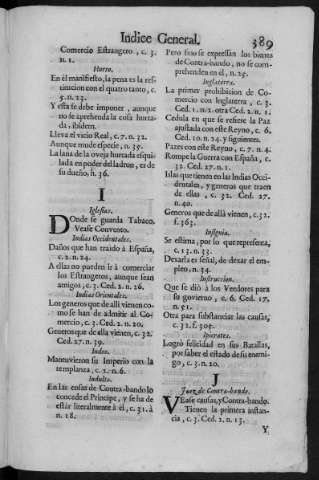 Indice General. 389
Comercio Estrangero, c. 3.
n. 1.
Hurto.
En el manifiesto, la pena es la res-
titucion con el quatro tanto, c.
5. n. 23.
Y esta se debe imponer, aunque
no se aprehenda la cosa hurta-
da, ibidem.
Lleva el vicio Real, c. 7. n. 32.
Aunque mude especie, n. 39.
La lana de la oveja hurtada esqui-
lada en poder del ladron, es de
su dueño, n. 36.
I
Iglesias.
Donde se guarda Tabaco.
Vease Convento.
Indias Occidentales.
Daños que han traìdo à España,
c. 2. n. 24.
A ellas no pueden ir à comerciar
los Estrangeros, aunque sean
amigos, c. 3. Ced. 2. n. 26.
Indias Orientales.
Los generos que de allì vienen co-
mo se han de admitir al Co-
mercio, c. 3. Ced. 2. n. 20.
Generos que de allà vienen, c. 32.
Ced. 27. n. 39.
Indos.
Mantuvieron su Imperio con la
templanza, c. 2. n. 6.
Indulto.
En las cosas de Contra-bando lo
concede el Principe, y se ha de
estàr literalmente à èl, c. 31. à
n. 18.
Pero si no se expressan los bienes
de Contra-bando, no se com-
prehenden en èl, n. 25.
Inglaterra.
La primer prohibicion de Co-
mercio con Inglaterra, c. 3.
Ced. 1. n. 2. otra Ced. 2. n. 1.
Cedula en que se refiere la Paz
ajustada con este Reyno, c. 6.
Ced. 10. n. 24. y siguientes.
Pazes con este Reyno, c. 7. n. 4.
Rompe la Guerra con España, c.
32. Ced. 27. n. 1.
Islas que tienen en las Indias Occi-
dentales, y generos que traen
de ellas, c. 32. Ced. 27.
n. 40.
Generos que de allà vienen, c. 32.
f. 363.
Insignia.
Se estima, por lo que representa,
c. 13. n. 33.
Dexarla es señal, de dexar el em-
pleo, n. 34.
Instruccion.
Que se diò à los Veedores para
su govierno, c. 6. Ced. 17.
n. 51.
Otra para substanciar las causas,
c. 32. f. 305.
Iphicrates.
Logrò felicidad en sus Batallas,
por saber el estado de su enemi-
go, c. 3. n. 20.
J
Juez de Contra-bando.
Vease causas, y Contra-bando.
Tienen la primera instan-
cia, c. 3. Ced. 2. n. 13.
Y